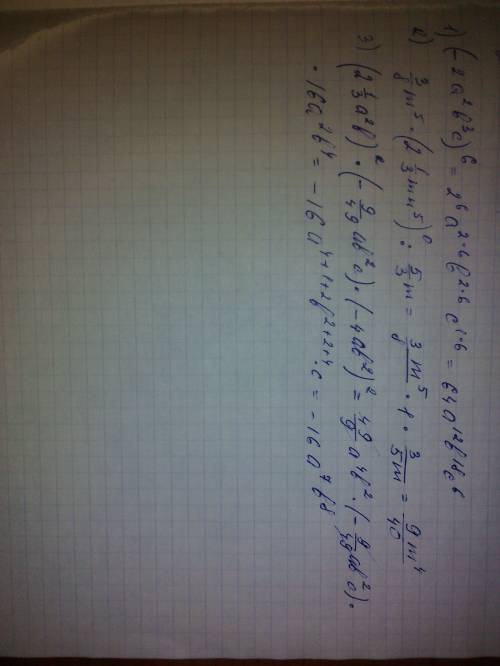 1) (-2a²b³c)⁶ = 2⁶a²·⁶b²·⁶c¹·⁶ = 64a¹²b¹⁸c⁶
2) 3/8 m⁵ · (2 1/3 mn⁵)⁰ : 5/3 m = 3m⁵/8 · 1 · 3/5m = 9m⁴/40
3) (2 1/3 a²b)² · (-9/49 ab²c) · (-4ab²)² = 49/9 a⁴b² · (-9/49 ab²c) ·
· 16a²b⁴ = -16a⁴⁺¹⁺²b²⁺²⁺⁴ · c = -16a⁷b⁸